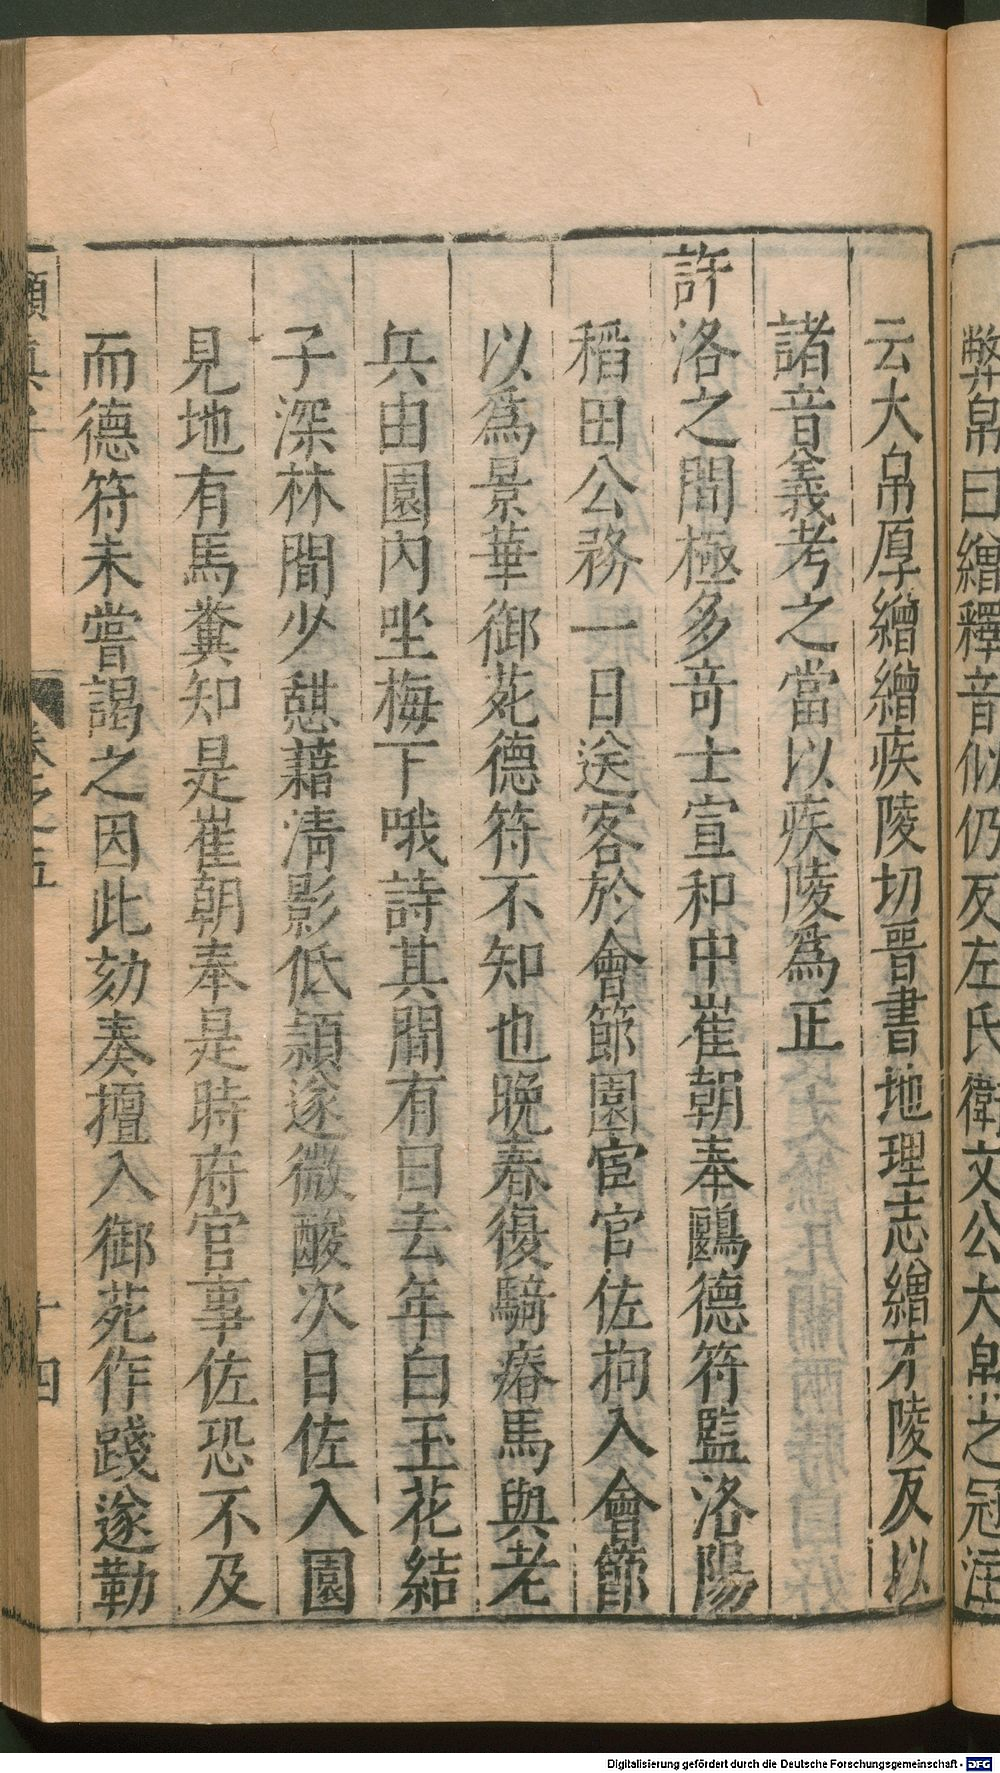 弊帛曰繒釋音似仍反左氏衛文公大帛之冠注
云大帛厚繒繒疾陵切晉書地理志繒才陵反以
諸音義考之當以疾陵爲正
許洛之間極多竒士宣和中崔朝奉鷗德符監洛陽
稻田公務一日送客於會節園宦官佐拘入會節
以爲景華御苑德符不知也晚春復騎瘠馬與老
兵由園内坐梅下哦詩其間有曰去年白玉花結
子深林間少憇藉清影低頴遂微酸次日佐入園
見地有馬糞知是崔朝奉是時府官事佐恐不及
而德符未嘗謁之因此劾奏擅入御苑作踐遂勒
卷之五
十四
Digitalisierung gefördert durch die Deutsche Forschungsgemeinschaft - DFG